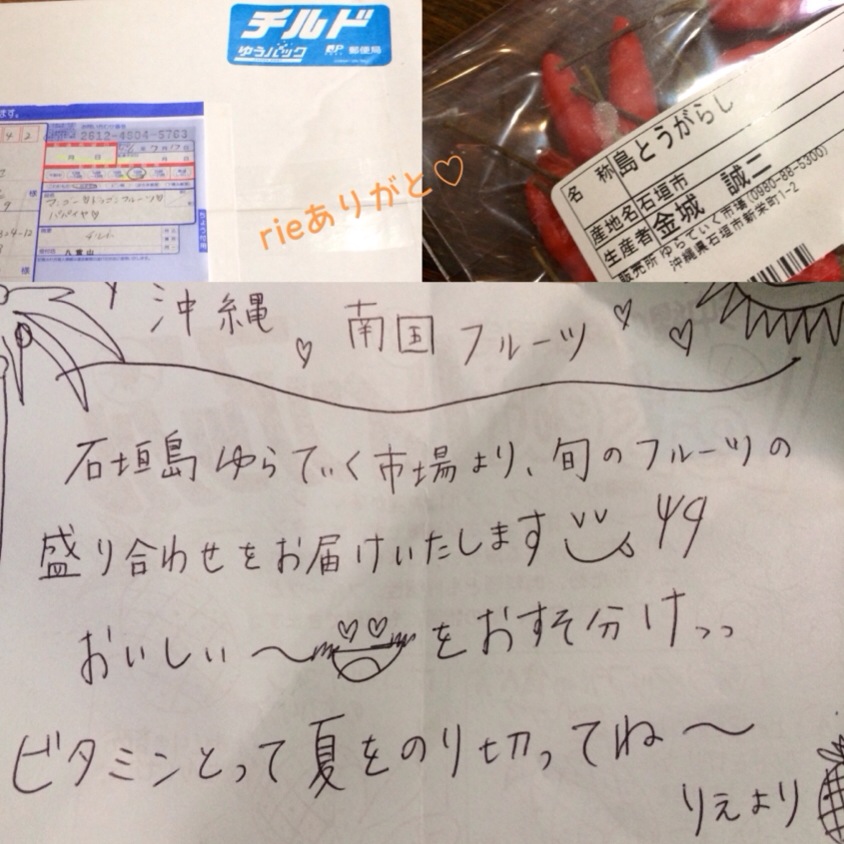 チルド
ゆうパック JP 郵便局
ます。
4 2
2612-4904-5763
月 日
様
マンゴー♡ドラゴンフルーツ♡
パパイヤ♡
チルド
八重山
様
rieありがと♡
名称 島とうがらし
産地名 石垣市
生産者 金城 誠二
販売所 ゆらてぃく市場(0980-88-5300)
沖縄県石垣市新栄町1-2
沖縄 ♡ 南国フルーツ ♡ ♡
石垣島ゆらてぃく市場より、旬のフルーツの
盛り合わせをお届けいたします
おいしい〜をおすそ分けっっ
ビタミンとって夏をのり切ってね〜
りえより